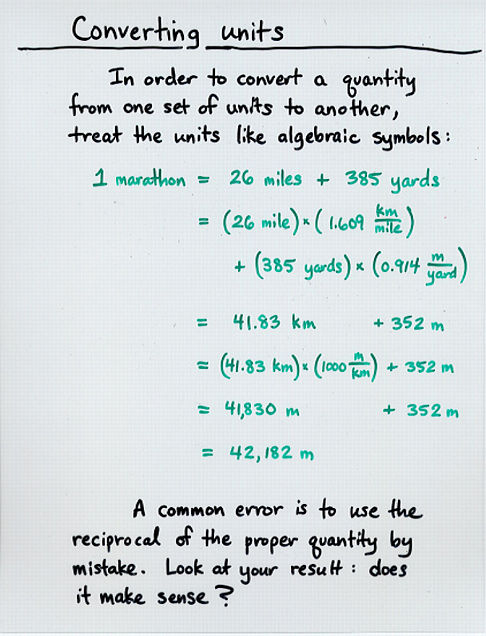 Converting units
In order to convert a quantity
from one set of units to another,
treat the units like algebraic symbols:
1 marathon = 26 miles + 385 yards
= (26 mile) × (1.609 km/mile)
+ (385 yards) × (0.914 m/yard)
= 41.83 km + 352 m
= (41.83 km) × (1000 m/km) + 352 m
= 41,830 m + 352 m
= 42,182 m
A common error is to use the
reciprocal of the proper quantity by
mistake. Look at your result: does
it make sense?